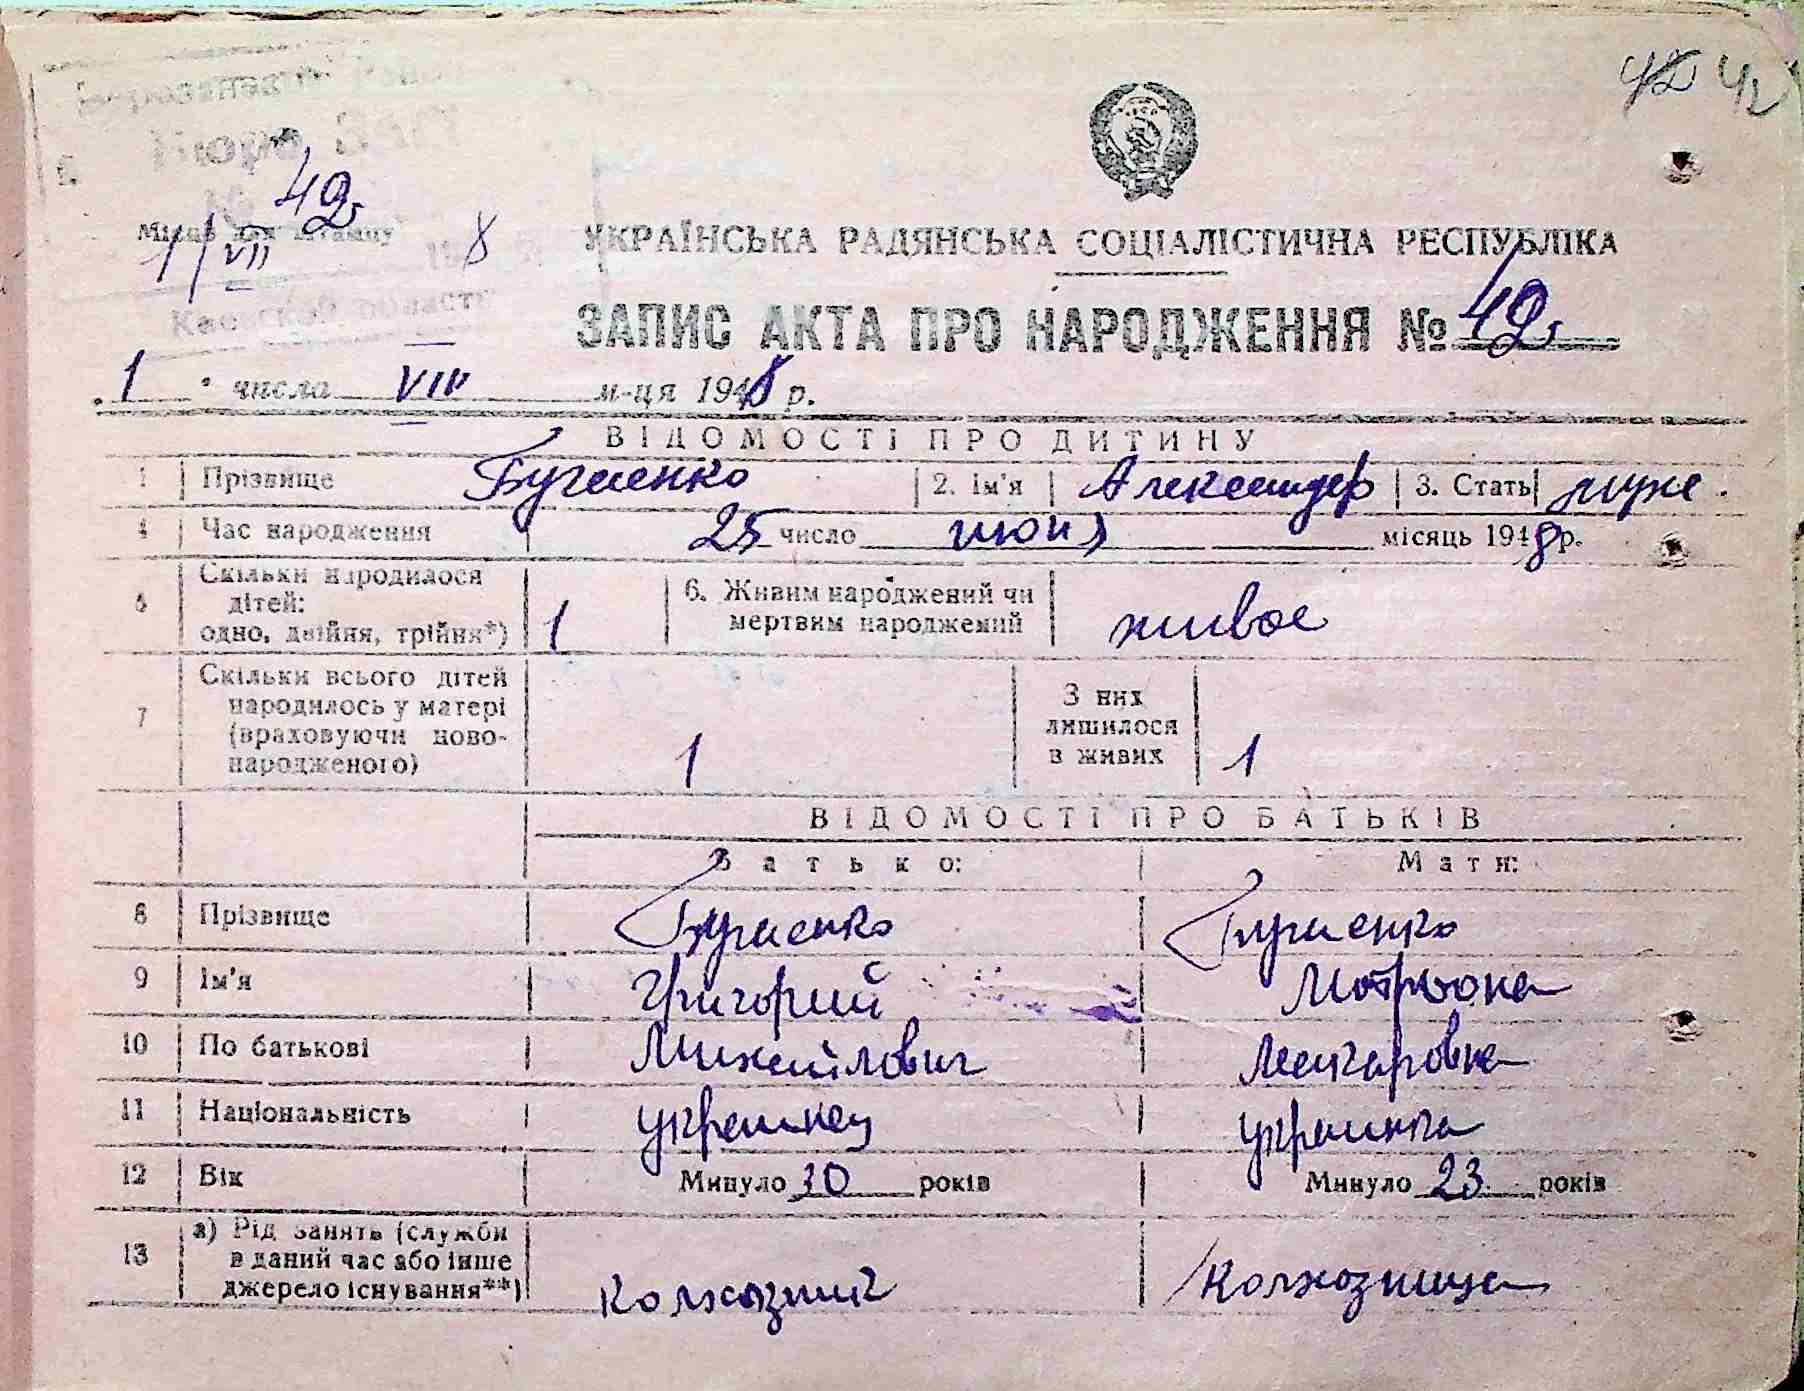 42 42
Бюро ЗАГС
42
Місце для штампу
1/VII 8
УКРАЇНСЬКА РАДЯНСЬКА СОЦІАЛІСТИЧНА РЕСПУБЛІКА
ЗАПИС АКТА ПРО НАРОДЖЕННЯ № 42
1 числа VIII м-ця 1948 р.
ВІДОМОСТІ ПРО ДИТИНУ
1 Прізвище Бугаенко 2. Ім'я Александр 3. Стать муж.
4 Час народження 25 число июня місяць 1948 р.
5 Скільки народилося
дітей:
одно, двійня, трійня*) 1 6. Живим народжений чи
мертвим народжений живое
7 Скільки всього дітей
народилось у матері
(враховуючи ново-
народженого) 1 З них
лишилося
в живих 1
ВІДОМОСТІ ПРО БАТЬКІВ
Батько: Мати:
8 Прізвище Бугаенко Бугаенко
9 Ім'я Григорий Мотрона
10 По батькові Михайлович Макаровна
11 Національність украинец украинка
12 Вік Минуло 30 років Минуло 23 років
13 а) Рід занять (служби
в даний час або інше
джерело існування**) колхозник колхозница